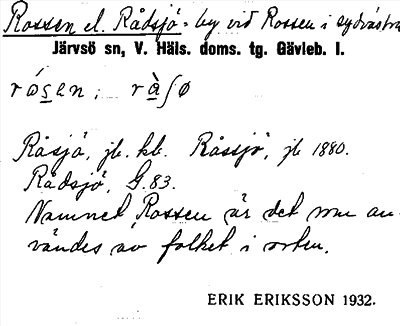 Rossen el. Rådsjö - by vid Rossen i sydvästra
Järvsö sn, V. Häls. doms. tg. Gävleb. l.
rósen, ràſø
Råsjö, jb. kb. Råssjö, jb 1880.
Rådsjö, G.83.
Namnet Rossen är det som an-
vändes av folket i orten.
ERIK ERIKSSON 1932.